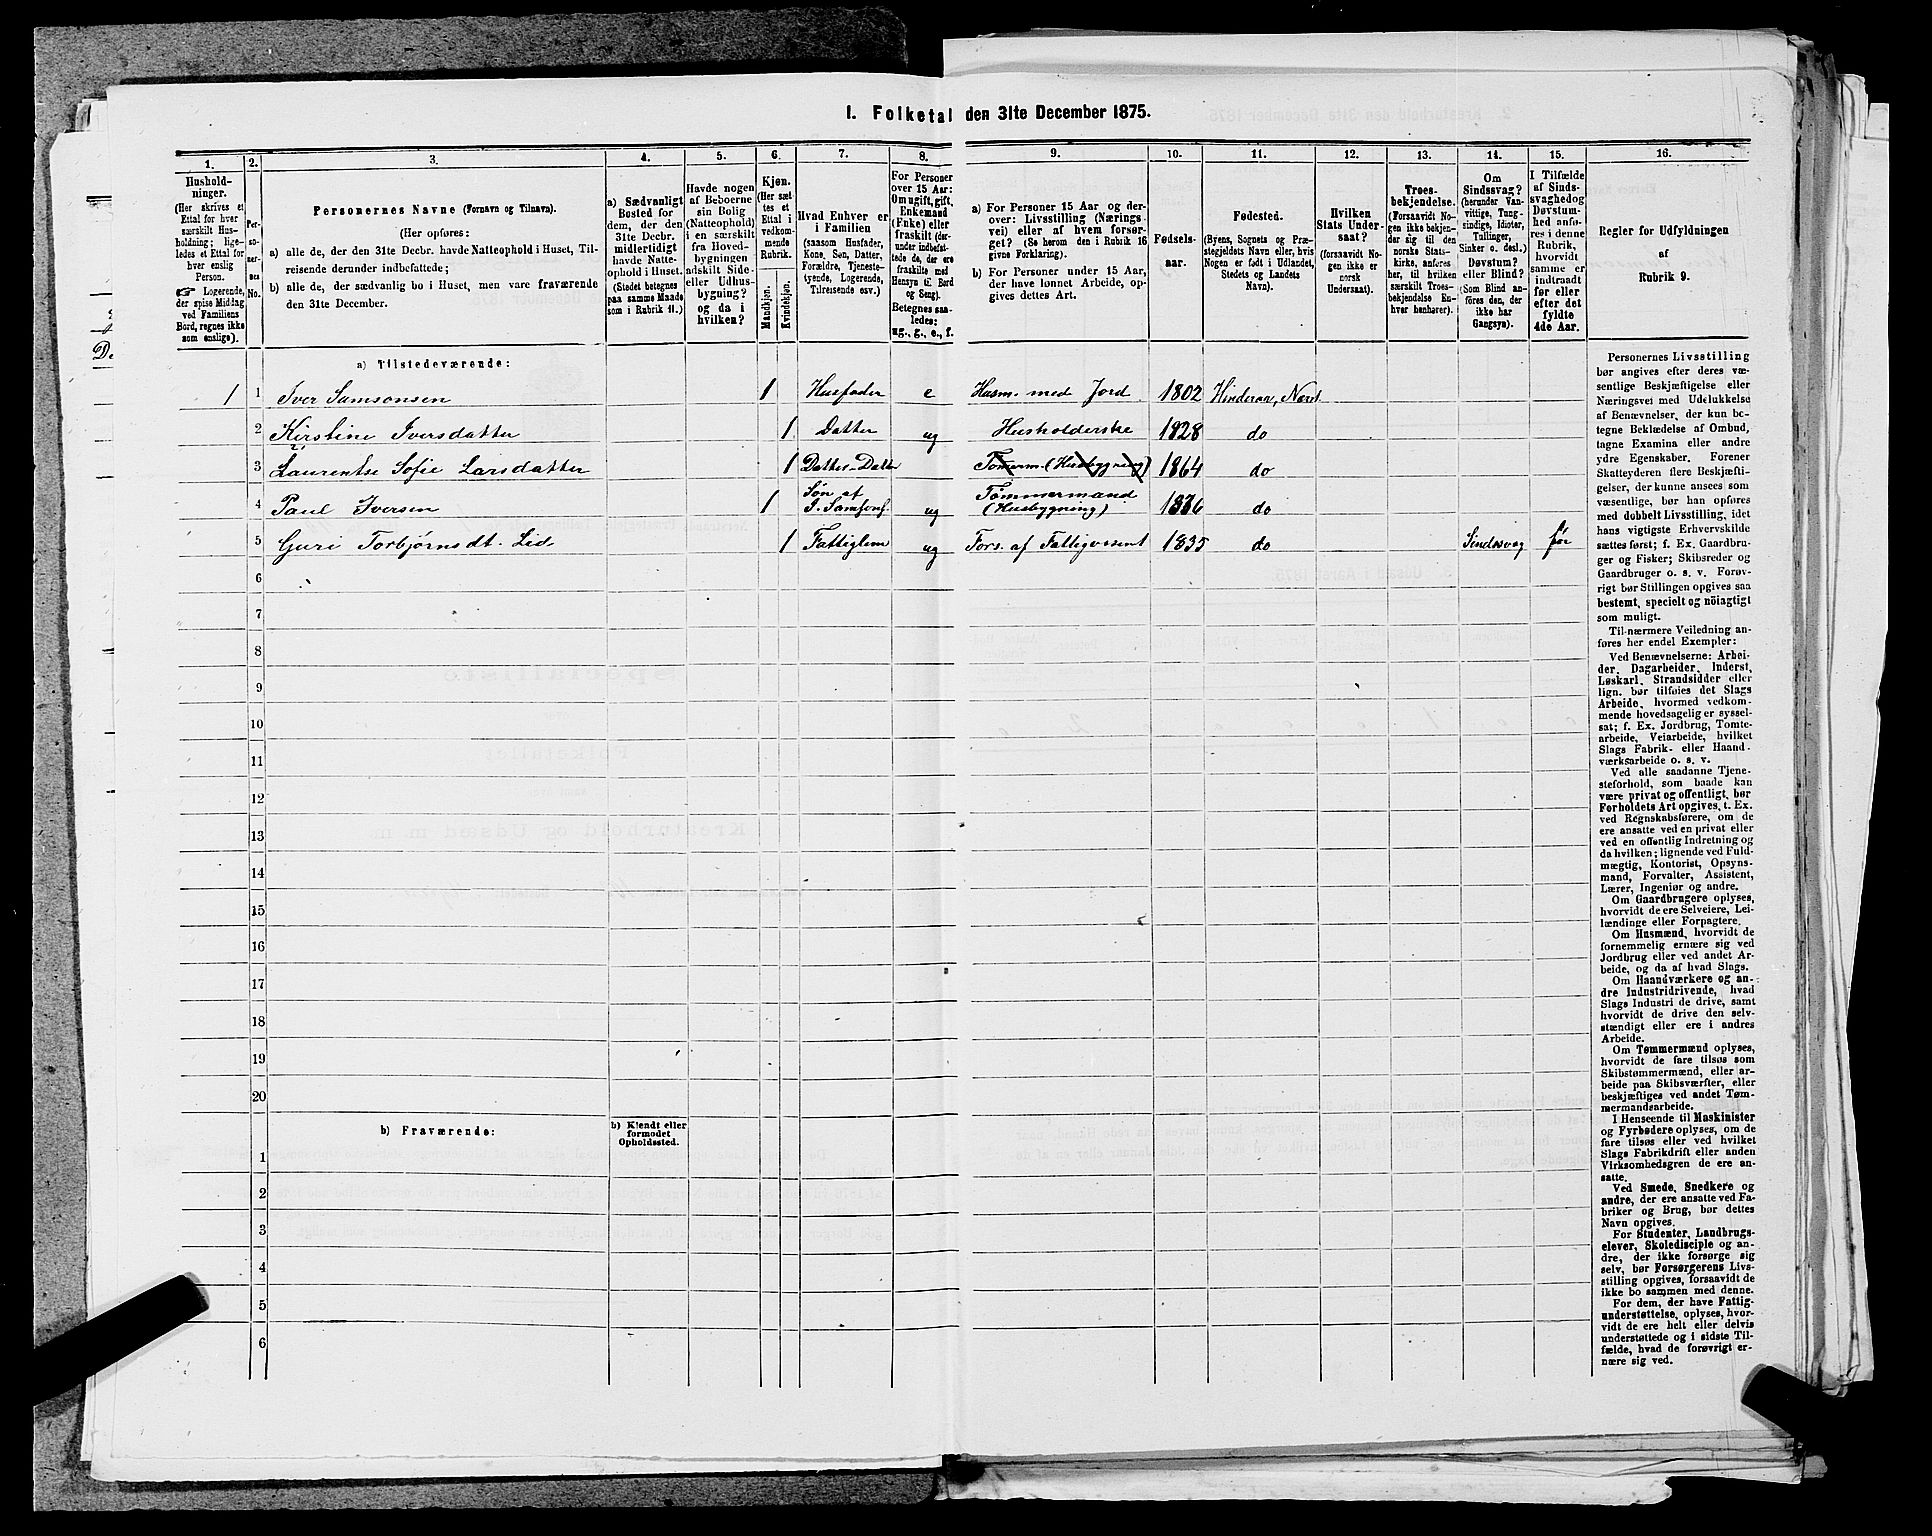 I. Folketal den 31te December 1875.
1. 2. 3. 4. 5. 6. 7. 8. 9. 10. 11. 12. 13. 14. 15. 16.
Hushold-
ninger.
(Her skrives et
Ettal for hver
særskilt Hus-
holdning; lige-
ledes et Ettal for
hver enslig
Person.
☞ Logerende,
der spise Middag
ved Familiens
Bord, regnes ikke
som enslige).
Per-
so-
ner-
nes
No.
Personernes Navne (Fornavn og Tilnavn).
(Her opføres:
a) alle de, der den 31te Decbr. havde Natteophold i Huset, Til-
reisende derunder indbefattede;
b) alle de, der sædvanlig bo i Huset, men vare fraværende
den 31te December.
a) Sædvanligt
Bosted for
dem, der den
31te Decbr.
midlertidigt
havde Natte-
ophold i Huset.
(Stedet betegnes
paa samme Maade
som i Rubrik 11.)
Havde nogen
af Beboerne
sin Bolig
(Natteophold)
i en særskilt
fra Hoved-
bygningen
adskilt Side-
eller Udhus-
bygning?
og da i
hvilken?
Kjøn.
(Her sæt-
tes et
Ettal i
vedkom-
mende
Rubrik.
Mandkjøn.
Kvindekjøn.
Hvad Enhver er
i Familien
(saasom Husfader,
Kone, Søn, Datter,
Forældre, Tjeneste-
tyende, Logerende,
Tilreisende osv.)
For Personer
over 15 Aar:
Om ugift, gift,
Enkemand
(Enke) eller
fraskilt (der-
under indbefat-
tede de, der ere
fraskilte med
Hensyn til Bord
og Seng).
Betegnes saa-
ledes:
ug., g., e., f.
a) For Personer 15 Aar og der-
over: Livsstilling (Nærings-
vei) eller af hvem forsør-
get? (Se herom den i Rubrik 16
givne Forklaring).
b) For Personer under 15 Aar,
der have lønnet Arbeide, op-
gives dettes Art.
Fødsels-
aar.
Fødested.
(Byens, Sognets og Præ-
stegjeldets Navn eller, hvis
Nogen er født i Udlandet,
Stedets og Landets
Navn).
Hvilken
Stats Under-
saat?
(forsaavidt No-
gen ikke er
norsk
Undersaat).
Troes-
bekjendelse.
(Forsaavidt No-
gen ikke bekjen-
der sig til den
norske Stats-
kirke, anføres
her, til hvilken
særskilt Troes-
bekjendelse En-
hver henhører).
Om
Sindssvag?
(herunder Van-
vittige, Tung-
sindige, Idioter,
Tullinger,
Sinker o. desl.)
Døvstum?
eller Blind?
(Som Blind an-
føres den, der
ikke har
Gangsyn).
I Tilfælde
af Sinds-
svaghed og
Døvstum-
hed anfø-
res i denne
Rubrik,
hvorvidt
samme er
indtraadt
før eller
efter det
fyldte
4de Aar.
Regler for Udfyldningen
af
Rubrik 9.
a) Tilstedeværende:
1 1 Iver Samsonsen 1 Husfader e Husm. med Jord 1802 Hinderaa, Næst.
2 Kirstine Iversdatter 1 Datter ug Husholderske 1828 do
3 Laurentse Sofie Larsdatter 1 Datter-Datter Tømerm. (Husbygning) 1864 do
4 Paul Iversen 1 Søn af I. Samsons. ug Tømmermand (Husbygning) 1836 do
5 Guri Torbjørnsdt. Lid 1 Fattiglem ug Fors. af Fattigvæsent 1835 do Sindssvag før
6
7
8
9
10
11
12
13
14
15
16
17
18
19
20
b) Fraværende:
b) Kjendt eller
formodet
Opholdssted.
1
2
3
4
5
6
Personernes Livsstilling
bør angives efter deres væ-
sentlige Beskjæftigelse eller
Næringsvei med Udelukkelse
af Benævnelser, der kun be-
tegne Beklædelse af Ombud,
tagne Examina eller andre
ydre Egenskaber. Forener
Skatteyderen flere Beskjæfti-
gelser, der kunne ansees som
væsentlige, bør han opføres
med dobbelt Livsstilling, idet
hans vigtigste Erhvervskilde
sættes først; f. Ex. Gaardbru-
ger og Fisker; Skibsreder og
Gaardbruger o. s. v. Forøv-
rigt bør Stillingen opgives saa
bestemt, specielt og nöiagtigt
som muligt.
Til nærmere Veiledning an-
føres her endel Exempler:
Ved Benævnelserne: Arbei-
der, Dagarbeider, Inderst,
Løskarl, Strandsidder eller
lign. bør tilføies det Slags
Arbeide, hvormed vedkom-
mende hovedsagelig er syssel-
sat; f. Ex. Jordbrug, Tomte-
arbeide, Veiarbeide, hvilket
Slags Fabrik- eller Haand-
værksarbeide o. s. v.
Ved alle saadanne Tjene-
steforhold, som baade kan
være privat og offentligt, bør
Forholdets Art opgives, t. Ex.
ved Regnskabsførere, om de
ere ansatte ved en privat eller
ved en offentlig Indretning og
da hvilken; lignende ved Fuld-
mægtig, Kontorist, Opsyns-
mand, Forvalter, Assistent,
Lærer, Ingeniør og andre.
Om Gaardbrugere oplyses,
hvorvidt de ere Selveiere, Lei-
lændinge eller Forpagtere.
Om Husmænd, hvorvidt de
fornemmelig ernære sig ved
Jordbrug eller ved andet Ar-
beide, og da af hvad Slags.
Om Haandværkere og an-
dre Industridrivende, hvad
Slags Industri de drive, samt
hvorvidt de drive den selv-
stændigt eller ere i andres
Arbeide.
Om Tømmermænd oplyses,
hvorvidt de fare tilsøs som
Skibstømmermænd, eller ar-
beide paa Skibsværfter, eller
beskjæftiges ved andet Tøm-
mermandsarbeide.
I Henseende til Maskinister
og Fyrbødere oplyses, om de
fare tilsøs eller ved hvilket
Slags Fabrikdrift eller anden
Virksomhedsgren de ere an-
satte.
Ved Smede, Snedkere og
andre, der ere ansatte ved Fa-
briker og Brug, bør dettes
Navn opgives.
For Studenter, Landbrugs-
elever, Skoledisciple og an-
dre, der ikke forsørge sig
selv, bør Forsørgerens Livs-
stilling opgives, forsaavidt de
ikke bo sammen med denne.
For dem, der have Fattig-
understøttelse, oplyses, hvor-
vidt de ere helt eller delvis
understøttede og i sidste Til-
fælde, hvad de forøvrigt er-
nære sig ved.